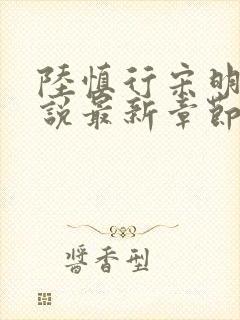 陸慎行宋明
說最新章節
醬香型